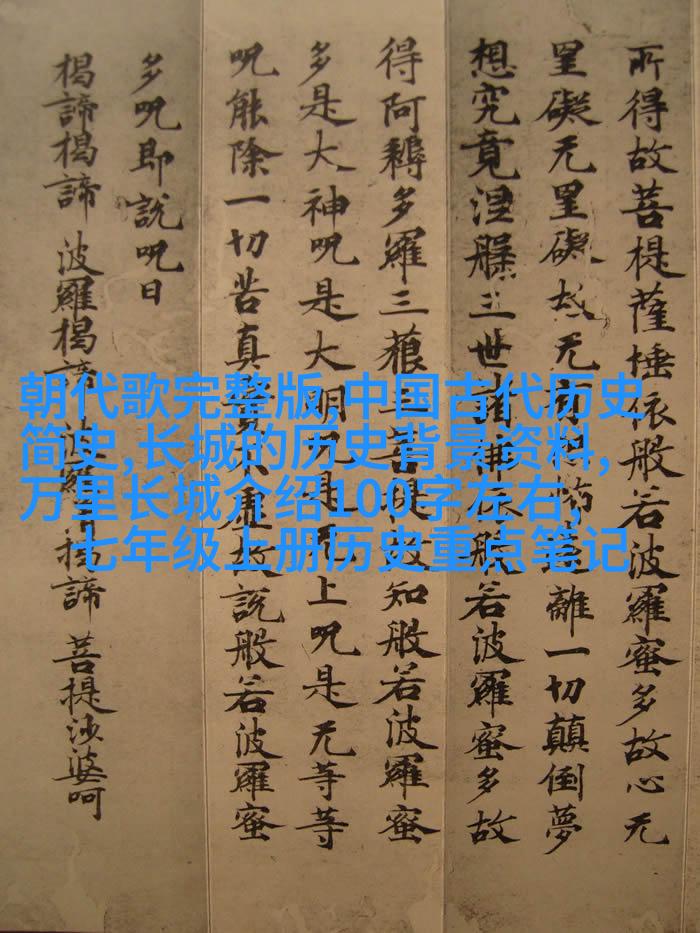 所得故菩提薩埵依般若波羅蜜多故心无
罣礙无罣礙故无有恐怖遠離一切顛倒夢
想究竟涅槃三世諸佛依般若波羅蜜多故
得阿耨多羅三藐三菩提故知般若波羅蜜
多是大神呪是大明呪是无上呪是无等等
呪能除一切苦真實不虛故說般若波羅蜜
多呪即說呪曰
揭諦揭諦 波羅揭諦 波羅僧揭諦 菩提沙婆呵
朝代歌完整版,中国古代历史
简史,长城的历史背景资料,
万里长城介绍100字左右,
七年级上册历史重点笔记